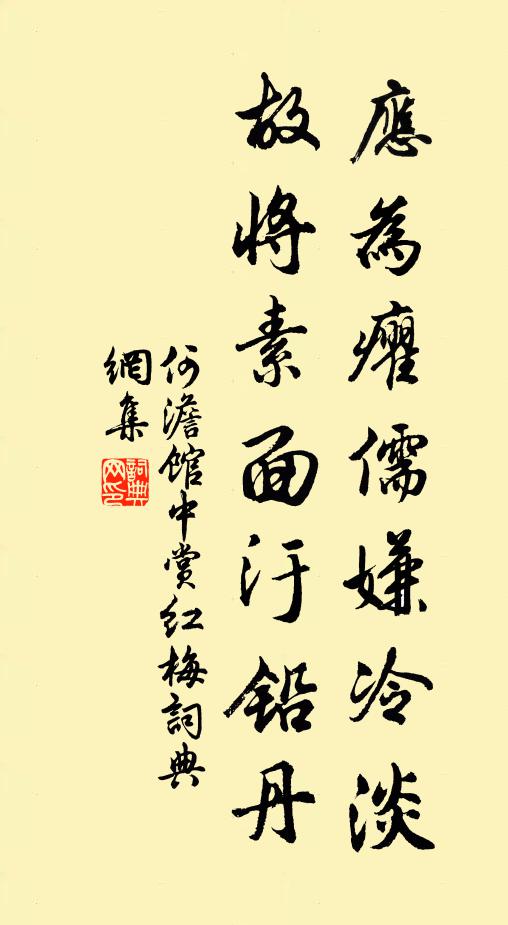 應為癯儒嫌冷淡
故將素面汙鉛丹
何澹館中賞紅梅詞典
網集
詞典網印